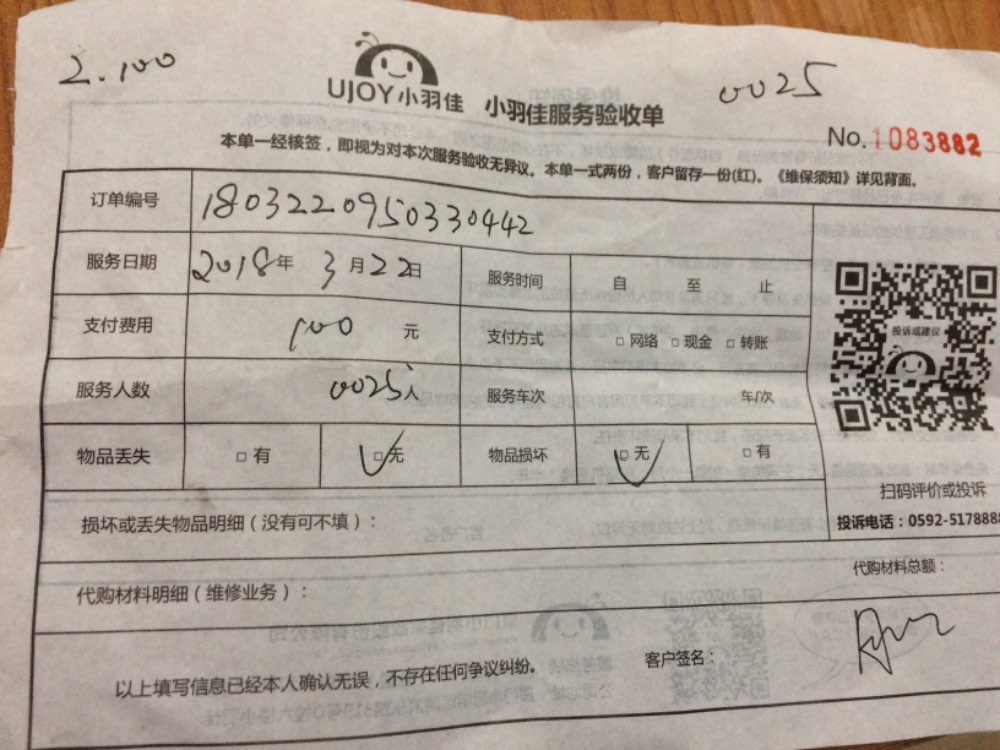 2.100
UJOY小羽佳 小羽佳服务验收单
0025
No.1083882
本单一经核签，即视为对本次服务验收无异议。本单一式两份，客户留存一份(红)。《维保须知》详见背面。
订单编号 1803220950330442
服务日期 2018年 3月22日 服务时间 自 至 止
支付费用 100 元 支付方式 □ 网络 □ 现金 □ 转账
服务人数 0025人 服务车次 车/次
物品丢失 □ 有 □无 物品损坏 □ 无 □ 有
投诉或建议
扫码评价或投诉
投诉电话：0592-5178888
损坏或丢失物品明细（没有可不填）：
代购材料明细（维修业务）：
代购材料总额：
以上填写信息已经本人确认无误，不存在任何争议纠纷。
客户签名：